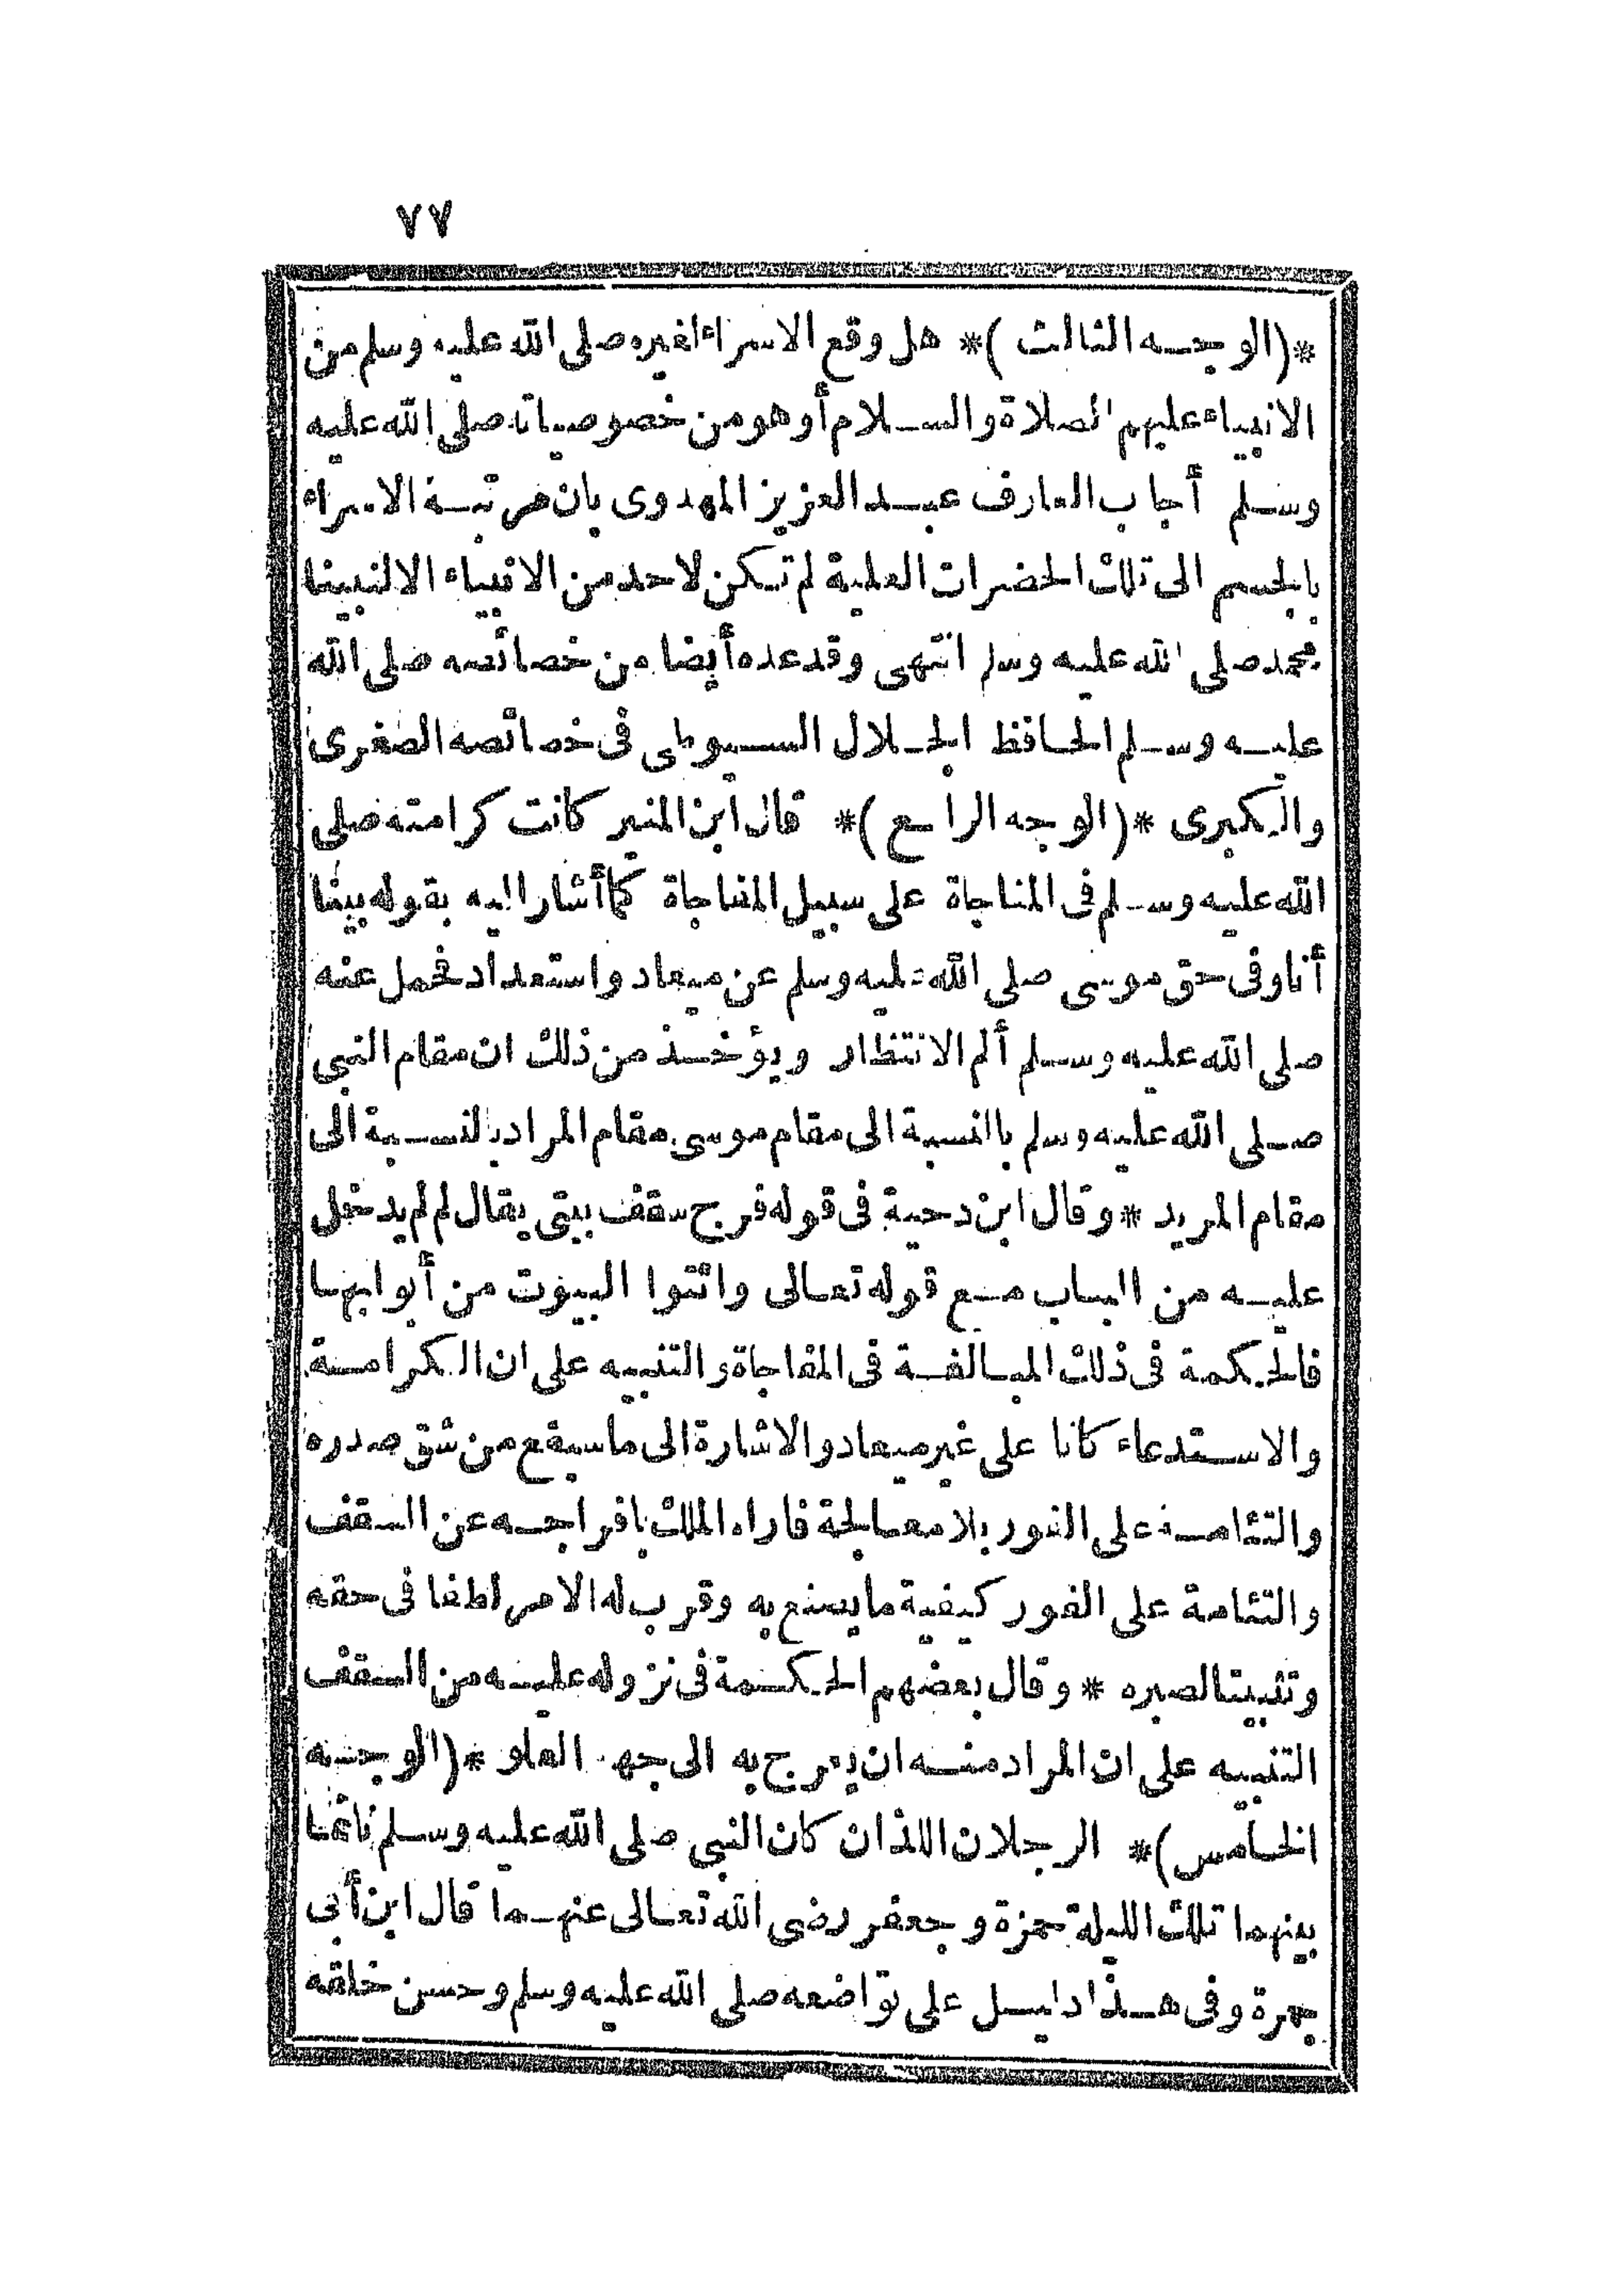 ٧٧
*(الوجه الثالث)* هل وقع الاسراء لغيره صلى الله عليه وسلم من
الانبياء عليهم الصلاة والسلام أو هو من خصوصياته صلى الله عليه
وسلم أجاب العارف عبد العزيز المهدوى بان مرتبة الاسراء
بالجسم الى تلك الحضرات العلية لم تكن لاحد من الانبياء الا لنبينا
محمد صلى الله عليه وسلم انتهى وقد عده أيضا من خصائصه صلى الله
عليه وسلم الحافظ الجلال السيوطى فى خصائصه الصغرى
والكبرى *(الوجه الرابع)* قال ابن المنير كانت كرامته صلى
الله عليه وسلم فى المناجاة على سبيل المفاجاة كما أشار اليه بقوله بينا
أنا وفى حق موسى صلى الله عليه وسلم عن ميعاد واستعداد فحمل عنه
صلى الله عليه وسلم ألم الانتظار ويؤخذ من ذلك ان مقام النبى
صلى الله عليه وسلم بالنسبة الى مقام موسى مقام المراد بالنسبة الى
مقام المريد * وقال ابن دحية فى قوله فرج سقف بيتى يقال لم لم يدخل
عليه من الباب مع قوله تعالى وائتوا البيوت من أبوابها
فالحكمة فى ذلك المبالغة فى المفاجاة والتنبيه على ان الكرامة
والاستدعاء كانا على غير ميعاد والاشارة الى ما سيقع من شق صدره
والتئامه على الفور بلا معالجة فاراه الملك بافراجه عن السقف
والتئامه على الفور كيفية ما يصنع به وقرب له الامر لطفا فى حقه
وتثبيتا لصبره * وقال بعضهم الحكمة فى نزوله عليه من السقف
التنبيه على ان المراد منه ان يعرج به الى جهة العلو *(الوجه
الخامس)* الرجلان اللذان كان النبى صلى الله عليه وسلم نائما
بينهما تلك الليلة حمزة وجعفر رضى الله تعالى عنهما قال ابن أبى
جمرة وفى هذا دليل على تواضعه صلى الله عليه وسلم وحسن خلقه